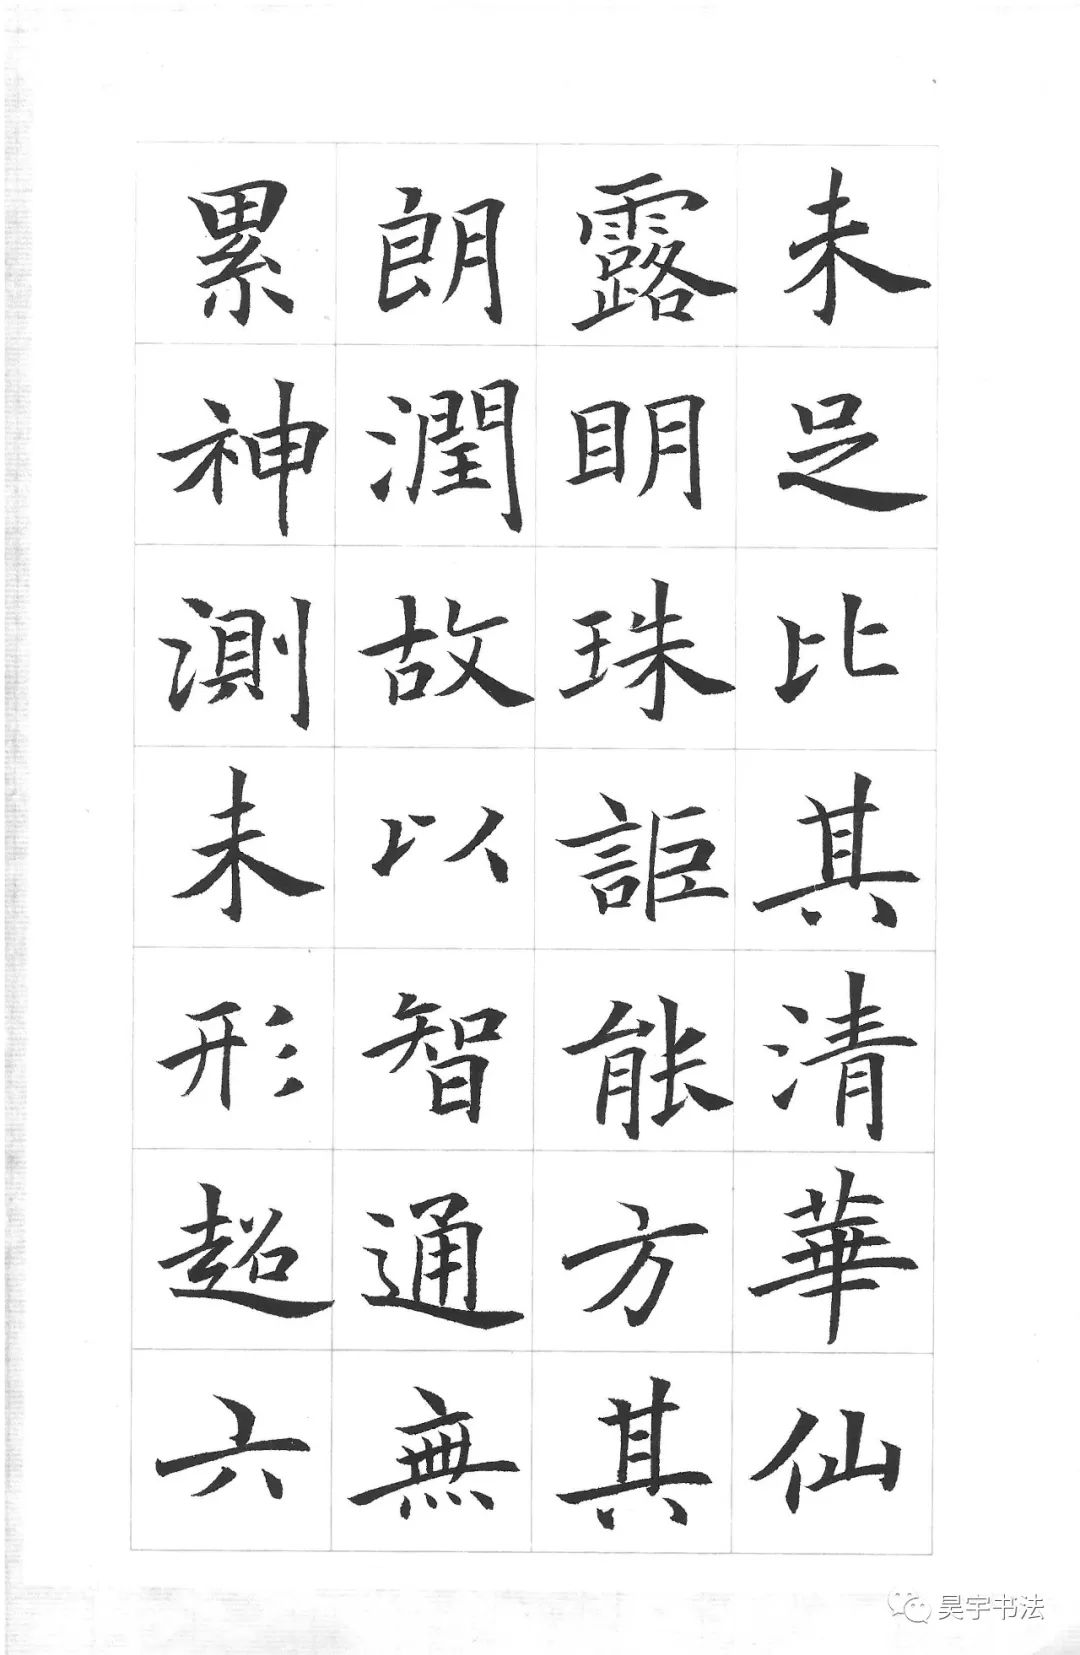 未足比其清華仙
露明珠詎能方其
朗潤故以智通無
累神測未形超六
昊宇书法